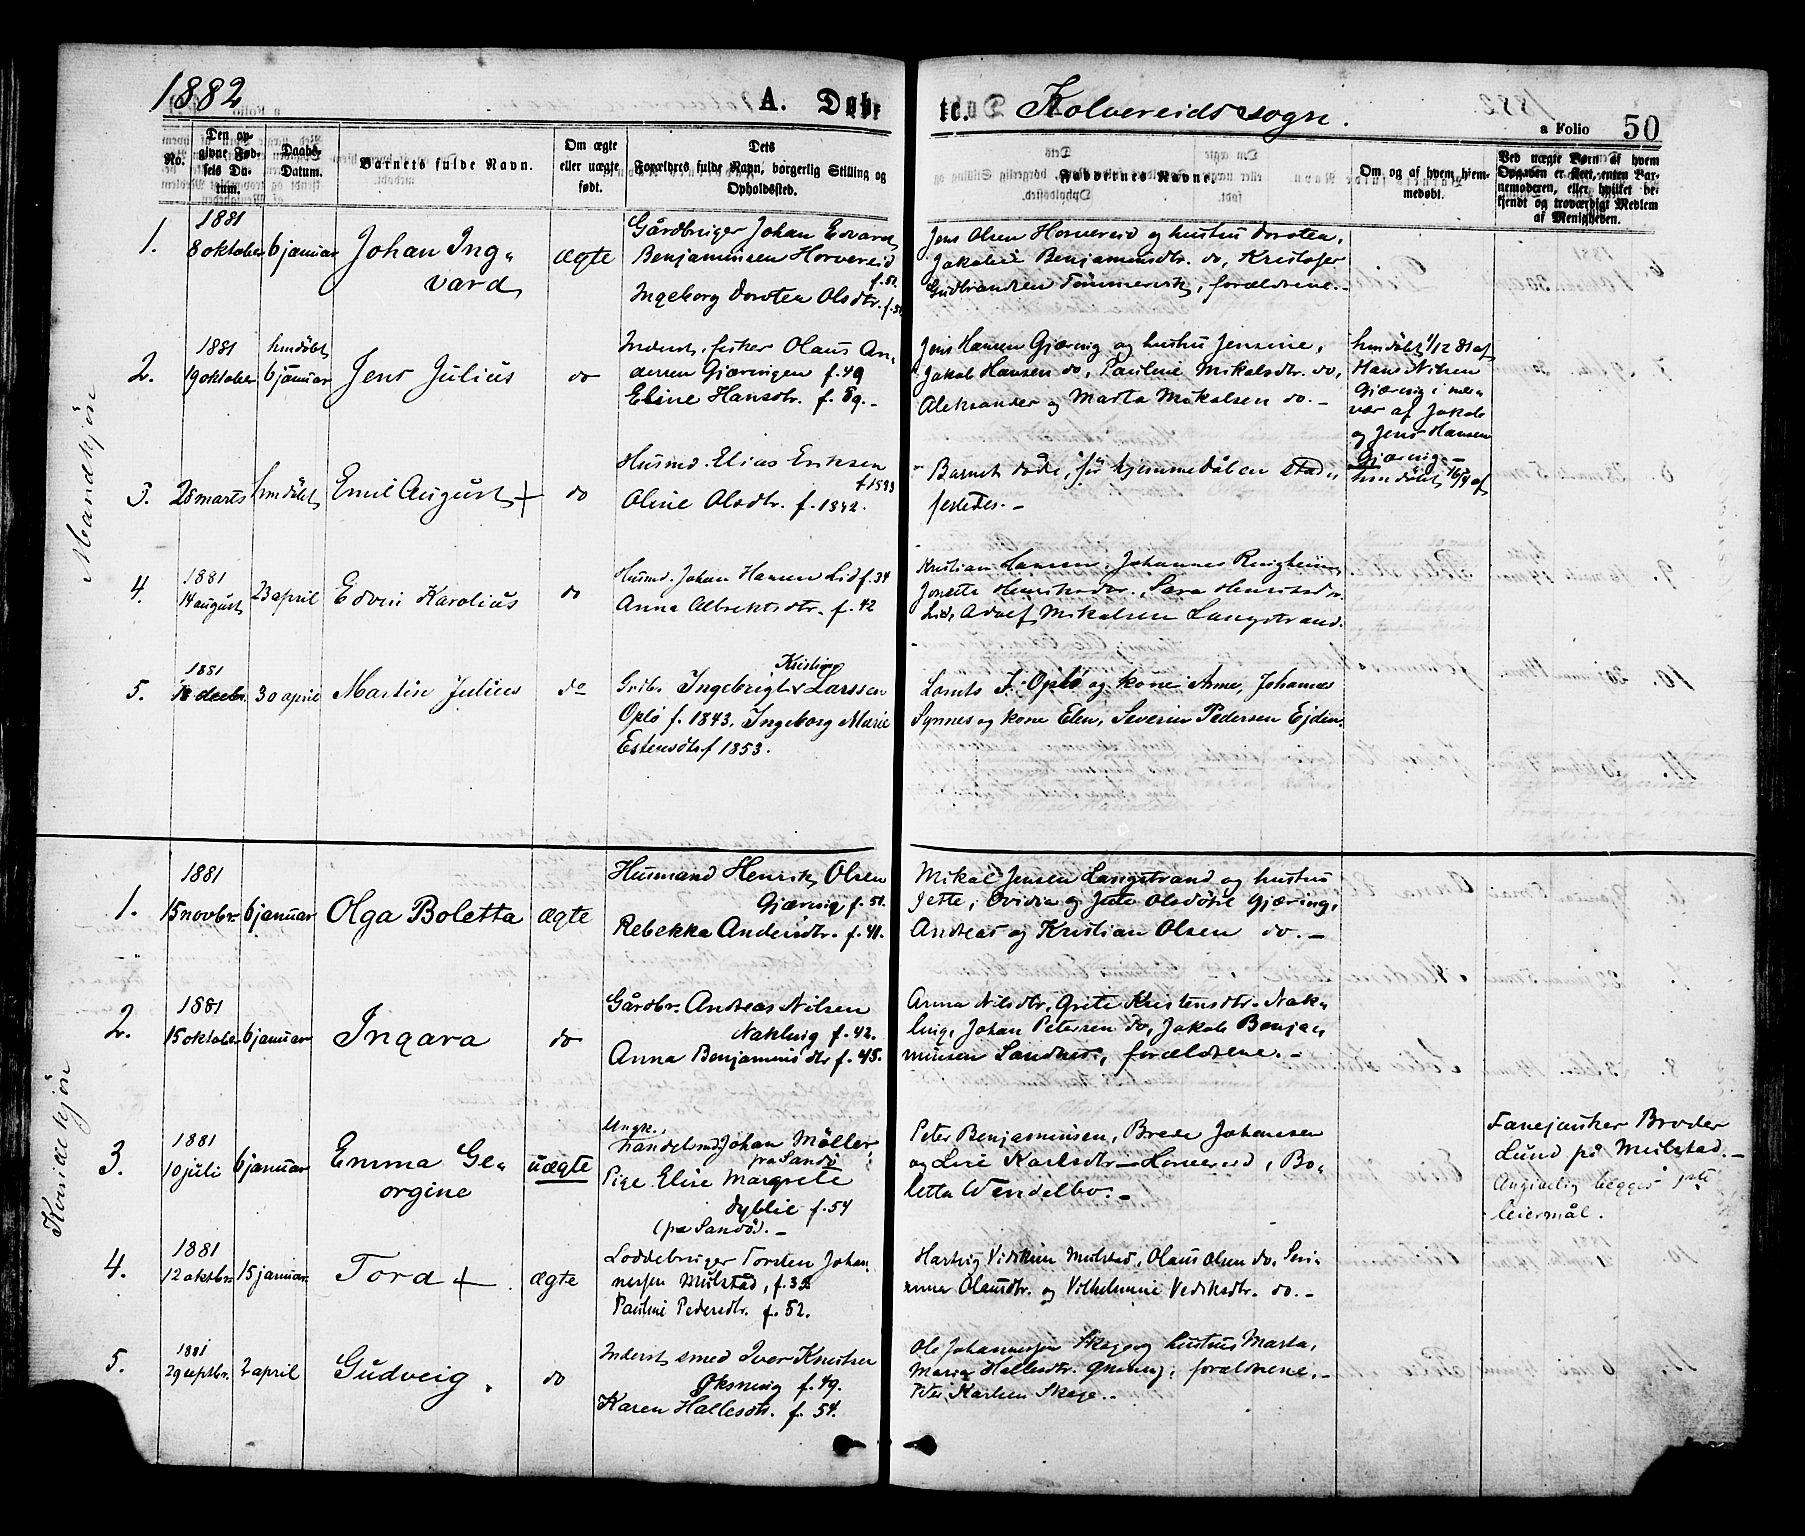 1882 A. Døbte. Kolvereids sogn. a Folio 50
No.
Den opgivne Fødsels Datum.
Daabs-Datum.
Barnets fulde Navn.
Om ægte eller uægte født.
Dets Forældres fulde Navn, borgerlig Stilling og Opholdssted.
Faddernes Navne.
Om og af hvem hjemmedøbt.
Ved uægte Børn af hvem Opgaven er skeet, enten Barnemoderen, eller hvilket bekjendt og troværdigt Medlem af Menigheden.
Mandkjøn
1. 1881 8 oktober 6 januar Johan Ing-
vard ægte
Gårdbruger Johan Edvard
Benjaminsen Horvereid f. 51.
Ingeborg Dorotea Olsdtr. f.
Jens Olsen Horvereid og hustru Dorotea,
Jakobie Benjaminsdtr. do, Kristofer
Gudbrandsen Tømmervik, forældrene.-
2. 1881 19 oktober hmdøbt 6 januar Jens Julius do
Inderst, fisker Olaus An-
dersen Gjæringen f. 49
Eline Hansdtr. f. 59.-
Jens Hansen Gjæring og hustru Jensine,
Jakob Hansen do, Pauline Mikalsdtr. do,
Aleksander og Marta Mikalsen do.-
hmdøbt 1/12 81 af
Hans Nilsen
Gjæring i nær-
vær af Jakob
og Jens Hansen
Gjæring.-
3. 28 marts hmdøbt Emil August + do
Husmd. Elias Eriksen
f. 1843
Oline Olsdtr. f. 1842.
Barnet døde, før hjemmedåben stad-
festedes.-
hmdøbt 16/4 af
4. 1881 14 august 23 april Edvin Karolius do
Husmd. Johan Hansen Lid f. 34
Anna Albrektsdtr. f. 42
Kristian Hansen, Johannes
Jonette Henriksdtr., Sara Henriksdtr.
Lid, Adolf Mikalsen Langstrand.
5. 1881 18 decbr. 30 april Martin Julius do
Kristina
Grdbr. Ingebrigt Larssen
Oplø f. 1843. Ingeborg Marie
Estensdtr f 1853.
Lorents J. Oplø og kone Anne, Johannes
Synnes og kone Elen, Severin Pedersen Ejden.
Kvindekjøn
1. 1881 15 novbr. 6 januar Olga Boletta ægte
Husmand Henrik Olsen
Gjæring f. 51.
Rebekka Andersdtr. f. 41.
Mikal Jensen Langstrand og hustru
Jette, Ovidia og Jette Olsdøtre Gjæring,
Andreas og Kristian Olsen do.-
2. 1881 15 oktober 6 januar Ingara do
Gårdbr. Andreas Nilsen
Nakling f. 42.
Anna Benjaminsdtr f. 45.
Anna Nilsdtr, Grete Kristensdtr. Nak-
ling, Johan Petersen do, Jakob Benja-
minsen Sandnes, forældrene.-
3. 1881 10 juli 6 januar Emma Ge-
orgine uægte
Ungk.
handelsmd Johan Møller,
fra Sandø
Pige Elise Margrete
Dyblie f. 54
(fra Sandø).-
Peter Benjaminsen, Brede Johansen
og Lise Karlsdtr - Horvereid, Bo-
letta Wendelbo.-
Fanejunker Broder
Lund på Mulstad.-
Angivelig begges 1ste
leiermål.
4. 1881 12 oktbr. 15 januar Tord + ægte
Loddebruger Torsten Johan-
nesen Mulstad, f. 32
Pauline Pedersdtr. f. 52.
Hartvig Vidiksen Mulstad, Olaus Olsen do,
Olausdtr. og Vilhelmine Vediksdtr. do.-
5. 1881 29 septbr. 2 april Gudveig. do
Inderst, smed Iver Knutsen
Øksning f. 49.
Karen Hallesdtr. f. 54.
Ole Johannessen Skage og hustru Marta,
Maria Hallesdtr. , forældrene.-
Peter Karlsen Skage.-